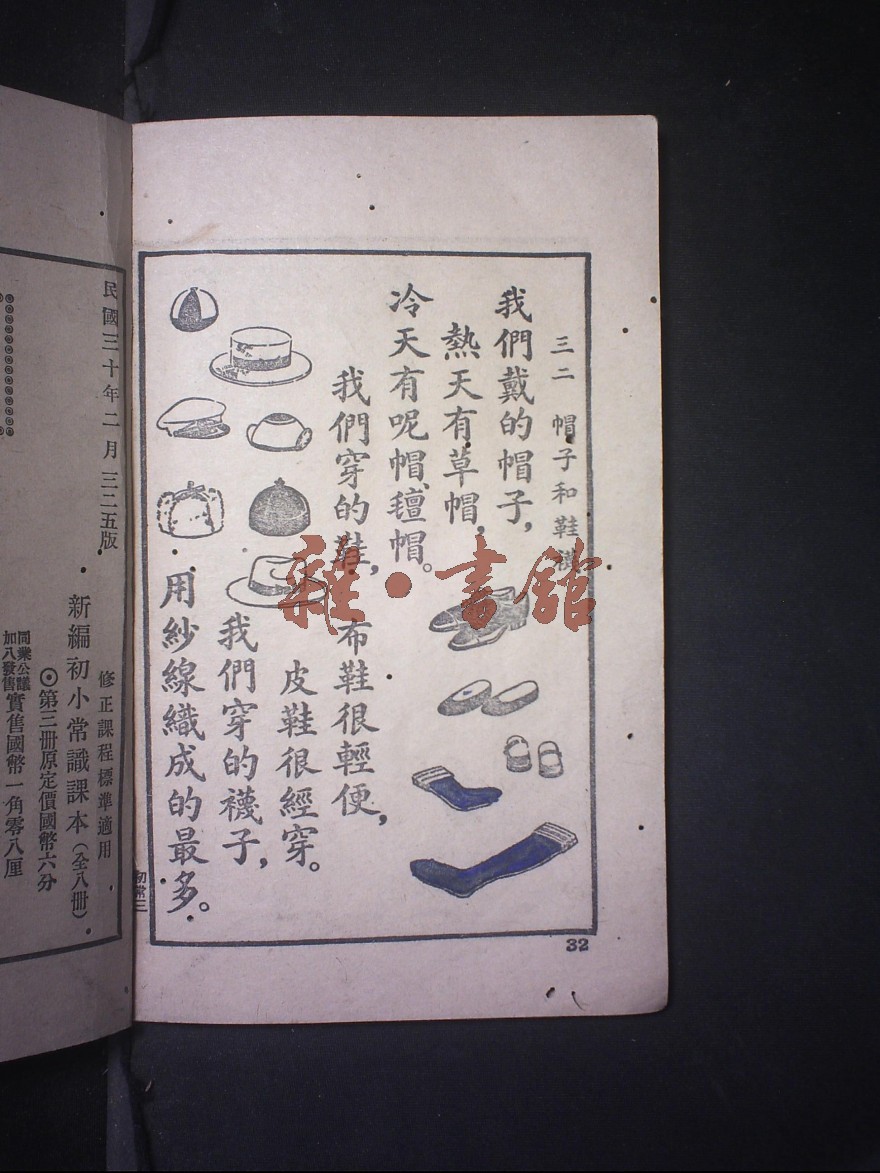 三二 帽子和鞋襪
我們戴的帽子，
熱天有草帽，
冷天有呢帽、氊帽。
我們穿的鞋，
布鞋很輕便，
皮鞋很經穿。
我們穿的襪子，
用紗線織成的最多。
32
初常三
雜·書館
民國三十年二月三二五版
修正課程標準適用
新編初小常識課本（全八冊）
◎第三冊原定價國幣六分
同業公議
加八發售
實售國幣一角零八厘